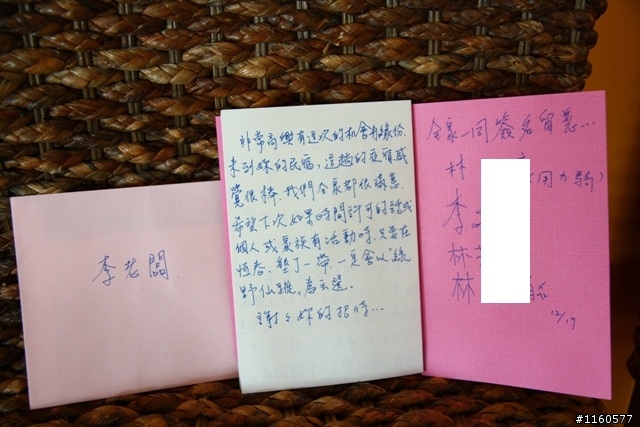 李老闆.
非常高興有這次的機會有緣份
來到妳的民宿,這趟的夜宿感
覺很棒.我們全家都很滿意.
希望下次如果時間許可的話或
個人或家族有活動時.只要在
恆春.墾丁一帶.一定會以"綠
野仙蹤"為首選.
謝々妳的招待...
全家一同簽名留念...
林
(用力騎)
李
林
林
12/17
#1160577